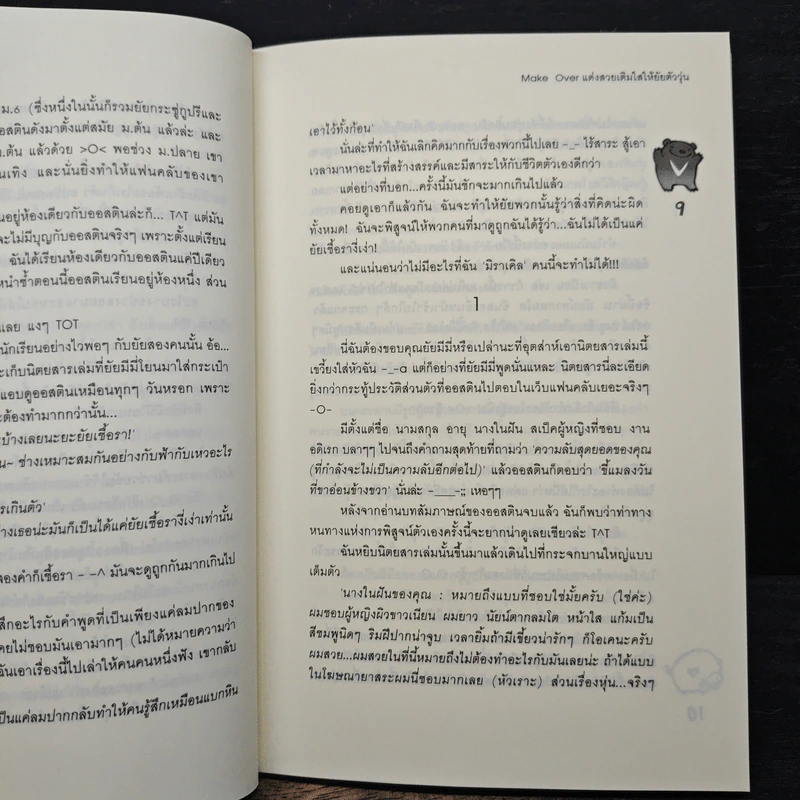 ม.6 (ซึ่งหนึ่งในนั้นก็รวมยัยกระซู่กูปรีและ
ออสตินดังมาตั้งแต่สมัย ม.ต้น แล้วล่ะ และ
ม.ต้น แล้วด้วย >O< พอช่วง ม.ปลาย เขา
นเทิง และนั่นยิ่งทำให้แฟนคลับของเขา
นอยู่ห้องเดียวกับออสตินล่ะก็... T^T แต่มัน
จะไม่มีบุญกับออสตินจริงๆ เพราะตั้งแต่เรียน
ฉันได้เรียนห้องเดียวกับออสตินแค่ปีเดียว
หนำซ้ำตอนนี้ออสตินเรียนอยู่ห้องหนึ่ง ส่วน
เลย แงๆ TOT
นักเรียนอย่างไวพอๆ กับยัยสองคนนั้น อ้อ...
ะเก็บนิตยสารเล่มที่ยัยมีมี่โยนมาใส่กระเป๋า
แอบดูออสตินเหมือนทุกๆ วันหรอก เพราะ
ะต้องทำมากกว่านั้น...
บ้างเลยนะยะยัยเชื้อรา!'
น~ ช่างเหมาะสมกันอย่างกับฟ้ากับเหวอะไร
รเกินตัว'
างเธอน่ะมันก็เป็นได้แค่ยัยเชื้อรางี่เง่าเท่านั้น
สองคำก็เชื้อรา - -^ มันจะดูถูกกันมากเกินไป
สึกอะไรกับคำพูดที่เป็นเพียงแค่ลมปากของ
คยไม่ชอบมันเอามากๆ (ไม่ได้หมายความว่า
ฉันเอาเรื่องนี้ไปเล่าให้คนคนหนึ่งฟัง เขากลับ
ป็นแค่ลมปากกลับทำให้คนรู้สึกเหมือนแบกหิน
Make Over แต่งสวยเติมใสให้ยัยตัววุ่น
9
เอาไว้ทั้งก้อน'
นั่นล่ะที่ทำให้ฉันเลิกคิดมากกับเรื่องพวกนี้ไปเลย -_- ไร้สาระ สู้เอา
เวลามาหาอะไรที่สร้างสรรค์และมีสาระให้กับชีวิตตัวเองดีกว่า
แต่อย่างที่บอก...ครั้งนี้มันชักจะมากเกินไปแล้ว
คอยดูเอาก็แล้วกัน ฉันจะทำให้ยัยพวกนั้นรู้ว่าสิ่งที่คิดน่ะผิด
ทั้งหมด! ฉันจะพิสูจน์ให้พวกคนที่มาดูถูกฉันได้รู้ว่า...ฉันไม่ได้เป็นแค่
ยัยเชื้อรางี่เง่า!
และแน่นอนว่าไม่มีอะไรที่ฉัน 'มิราเคิล' คนนี้จะทำไม่ได้!!!
1
นี่ฉันต้องขอบคุณยัยมีมี่หรือเปล่านะที่อุตส่าห์เอานิตยสารเล่มนี้
เขวี้ยงใส่หัวฉัน -_-a แต่ก็อย่างที่ยัยมีมี่พูดนั่นแหละ นิตยสารนี่ละเอียด
ยิ่งกว่ากระทู้ประวัติส่วนตัวที่ออสตินไปตอบในเว็บแฟนคลับเยอะจริงๆ
-O-
มีตั้งแต่ชื่อ นามสกุล อายุ นางในฝัน สเป็คผู้หญิงที่ชอบ งาน
อดิเรก บลาๆๆ ไปจนถึงคำถามสุดท้ายที่ถามว่า 'ความลับสุดยอดของคุณ
(ที่กำลังจะไม่เป็นความลับอีกต่อไป)' แล้วออสตินก็ตอบว่า 'ขี้แมลงวัน
ที่ขาอ่อนข้างขวา' นั่นล่ะ -___-;; เหอๆๆ
หลังจากอ่านบทสัมภาษณ์ของออสตินจบแล้ว ฉันก็พบว่าท่าทาง
หนทางแห่งการพิสูจน์ตัวเองครั้งนี้จะยากน่าดูเลยเชียวล่ะ T^T
ฉันหยิบนิตยสารเล่มนั้นขึ้นมาแล้วเดินไปที่กระจกบานใหญ่แบบ
เต็มตัว
'นางในฝันของคุณ : หมายถึงแบบที่ชอบใช่มั้ยครับ (ใช่ค่ะ)
ผมชอบผู้หญิงผิวขาวเนียน ผมยาว นัยน์ตากลมโต หน้าใส แก้มเป็น
สีชมพูนิดๆ ริมฝีปากน่าจูบ เวลายิ้มถ้ามีเขี้ยวน่ารักๆ ก็โอเคนะครับ
ผมสวย...ผมสวยในที่นี้หมายถึงไม่ต้องทำอะไรกับมันเลยน่ะ ถ้าได้แบบ
ในโฆษณายาสระผมนี่ชอบมากเลย (หัวเราะ) ส่วนเรื่องหุ่น...จริงๆ